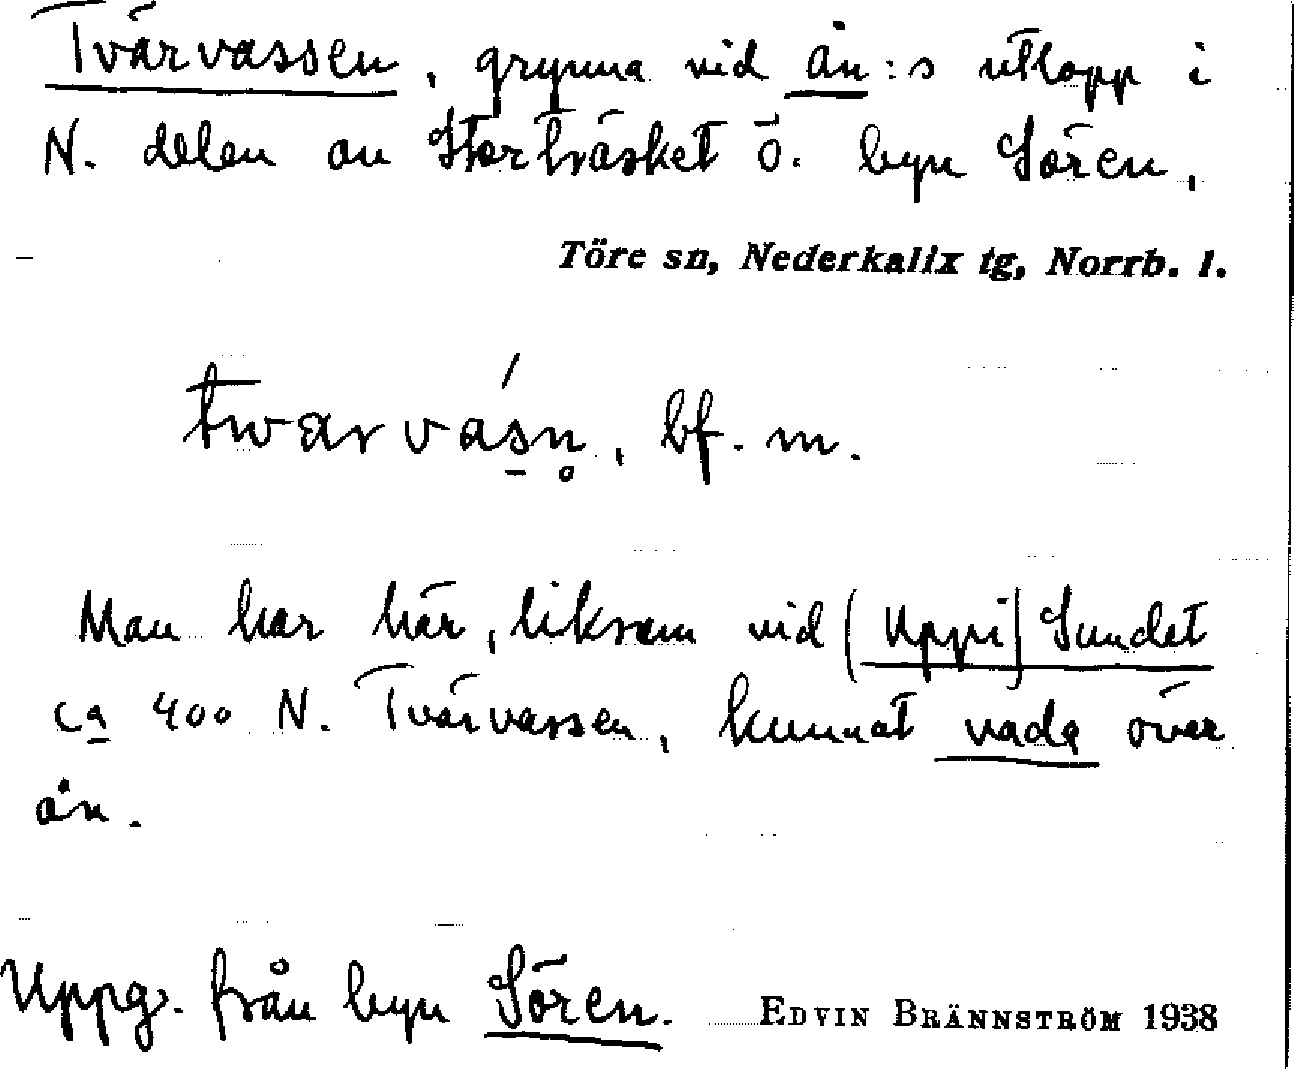 Tvärvassen, grynna vid ån:s utlopp i
N. delen av Storträsket ö. byn Sören,
Töre sn, Nederkalix tg, Norrb. l.
twarvásn̥, bf. m.
Man har här, liksom vid (Uppi) Sundet
ca 400 N. Tvärvassen, kunnat vada över
ån.
Uppg. från byn Sören. EDVIN BRÄNNSTRÖM 1938